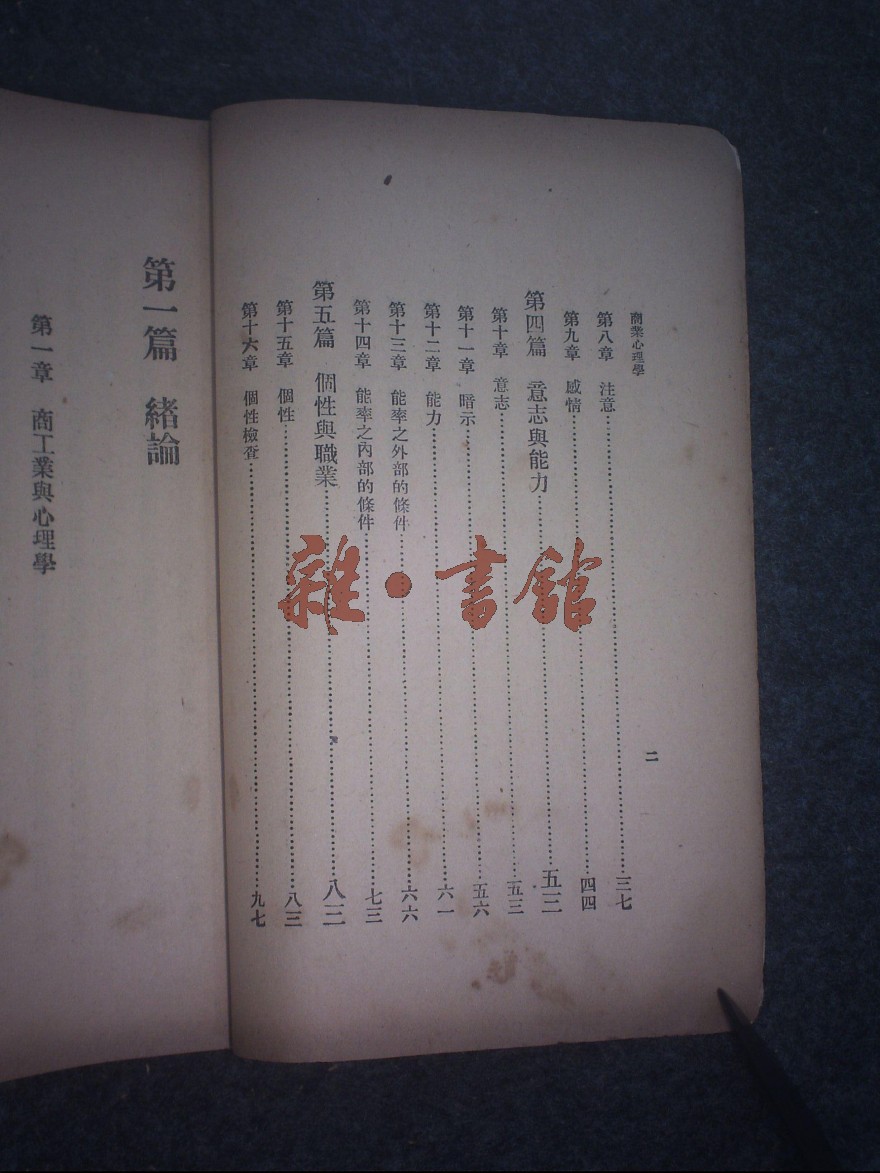 商業心理學
二
第八章 注意……三七
第九章 感情……四四
第四篇 意志與能力……五三
第十章 意志……五三
第十一章 暗示……五六
第十二章 能力……六一
第十三章 能率之外部的條件……六六
第十四章 能率之內部的條件……七三
第五篇 個性與職業……八三
第十五章 個性……八三
第十六章 個性檢查……九七
第一篇 緒論
第一章 商工業與心理學
雜·書館